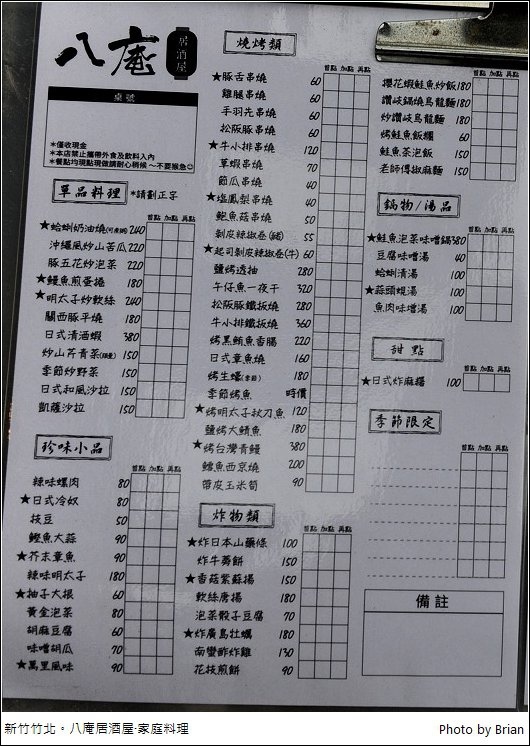 八庵
居酒屋
桌號
＊僅收現金
＊本店禁止攜帶外食及飲料入內
＊餐點均現點現做請耐心稍候～不要猴急☺
單品料理 ＊請劃正字
首點 加點 再點
★蛤蜊奶油燒 240
沖繩風炒山苦瓜 220
豚五花炒泡菜 220
★鰻魚煎蛋捲 180
★明太子炒軟絲 240
關西豚平燒 180
日式清酒蝦 380
炒山芹青菜 150
季節炒野菜 150
日式和風沙拉 150
凱薩沙拉 150
珍味小品
首點 加點 再點
辣味螺肉 80
★日式冷奴 80
枝豆 50
鰹魚大蒜 90
★芥末章魚 90
辣味明太子 180
★柚子大根 60
黃金泡菜 80
胡麻豆腐 60
味噌胡瓜 70
★萬里風味 90
燒烤類
首點 加點 再點
★豚舌串燒 60
雞腿串燒 60
手羽先串燒 60
松阪豚串燒 60
★牛小排串燒 120
草蝦串燒 70
節瓜串燒 40
★塩鳳梨串燒 40
鮑魚菇串燒 50
剝皮辣椒卷(豬) 55
★起司剝皮辣椒卷(牛) 60
鹽烤透抽 280
午仔魚一夜干 320
松阪豚鐵板燒 280
牛小排鐵板燒 360
烤黑鮪魚香腸 220
日式章魚燒 160
烤生蠔(季節) 180
季節烤魚 時價
★烤明太子秋刀魚 120
鹽烤大鯖魚 180
★烤台灣青鱸 380
鱈魚西京燒 200
帶皮玉米筍 90
炸物類
首點 加點 再點
★炸日本山藥條 100
炸牛蒡餅 150
★香菇紫蘇揚 150
軟絲唐揚 180
泡菜骰子豆腐 70
★炸廣島牡蠣 180
南蠻酢炸雞 130
花枝煎餅 90
首點 加點 再點
櫻花蝦鮭魚炒飯 180
讚岐鍋燒烏龍麵 180
炒讚岐烏龍麵 180
烤鮭魚飯糰 60
鮭魚茶泡飯 150
老師傅椒麻麵 150
鍋物/湯品
首點 加點 再點
★鮭魚泡菜味噌鍋 380
豆腐味噌湯 40
蛤蜊清湯 100
★蒜頭蜆湯 100
魚肉味噌湯 100
甜點
首點 加點 再點
★日式炸麻糬 100
季節限定
首點 加點 再點
備註
新竹竹北。八庵居酒屋‧家庭料理
Photo by Brian